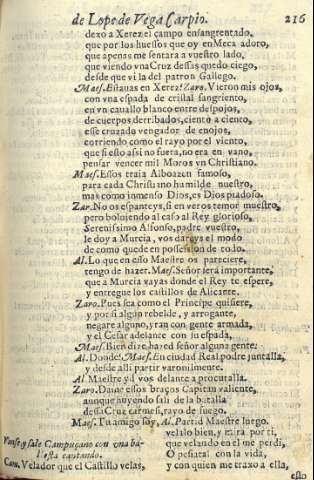 de Lope de Vega Carpio. 216
dexo a Xerez el campo ensangrentado.
que por los huessos que oy en Meca adoro,
que apenas me sentara a vuestro lado,
que viendo vna Cruz dessas quedo ciego,
desde que vi la del patron Gallego.
Maes. Estauas en Xerez? Zaro. Vieron mis ojos,
con vna espada de cristal sangriento,
en vn cauallo blanco entre despojos,
de cuerpos, derribados, ciento a ciento,
esse cruzado vengador de enojos,
corriendo como el rayo por el viento,
que si esto assi no fuera, no era en vano,
pensar vencer mil Moros vn Christiano.
Maes. Essos traia Alboazen famoso,
para cada Christiano humilde nuestro,
mas como inmenso Dios, es Dios piadoso.
Zar. No os espanteys, si en veros temor muestro,
pero bolujendo al caso al Rey glorioso,
Serenissimo Alfonso, padre vuestro,
le doy a Murcia, vos dareys el modo
de como quede en possession de todo.
Al. Lo que en esso Maestre os pareciere,
tengo de hazer. Maes. Señor sera importante,
que a Murcia vayas donde el Rey te espere,
y entregue los castillos de Alicante.
Zaro. Pues sea como el Principe quisiere,
y por si algun rebelde, y arrogante,
negare alguno, yran con gente armada,
y el Cesar adelante con su espada.
Maes. Bien dize, hare señor alguna gente:
Al. Donde? Maes. En ciudad Real podre juntalla,
y desde alli partir varonilmente.
Al. Maestre yd vos delante a procuralla.
Zaro. Dame essos braços Capitan valiente,
aunque huyendo sali de la batalla
dessa Cruz carmesi, rayo de fuego.
Maes. Tu amigo soy, Al. Partid Maestre luego.
Vanse, y sale Campuzano con vna ba-
llesta cantando.
Cam. Velador que el Castillo velas,
velalo bien, y mira por ti,
que velando en el me perdi,
O pesar al con la vida,
y con quien me traxo a ella,
esto